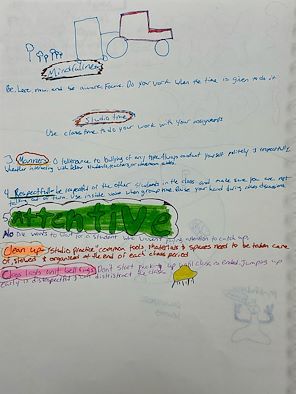 Mindfullness
Be here now and be always Focus. Do your work when the time is given to do it
Studio time
Use class time to do your work with your assignments
3 Manners 0 tolerance to bullying of any type. Always conduct yourself politely & respectfully
whether interacting with fellow students, teachers, or
4. Respectful- be respectful of the other students in the class and make sure you are not
talking out of turn. Use inside voice when group time. Raise your hand during class discussions
5. attentive
No one wants to wait for a student who wasn't paying attention to catch up.
Clean up- "studio practice" common tools materials & spaces need to be taken care
of, stored & organized at the end of each class period
Class lasts until bell rings. Don't start packing up until class is ended. Jumping up
early is disrespectful & will the class